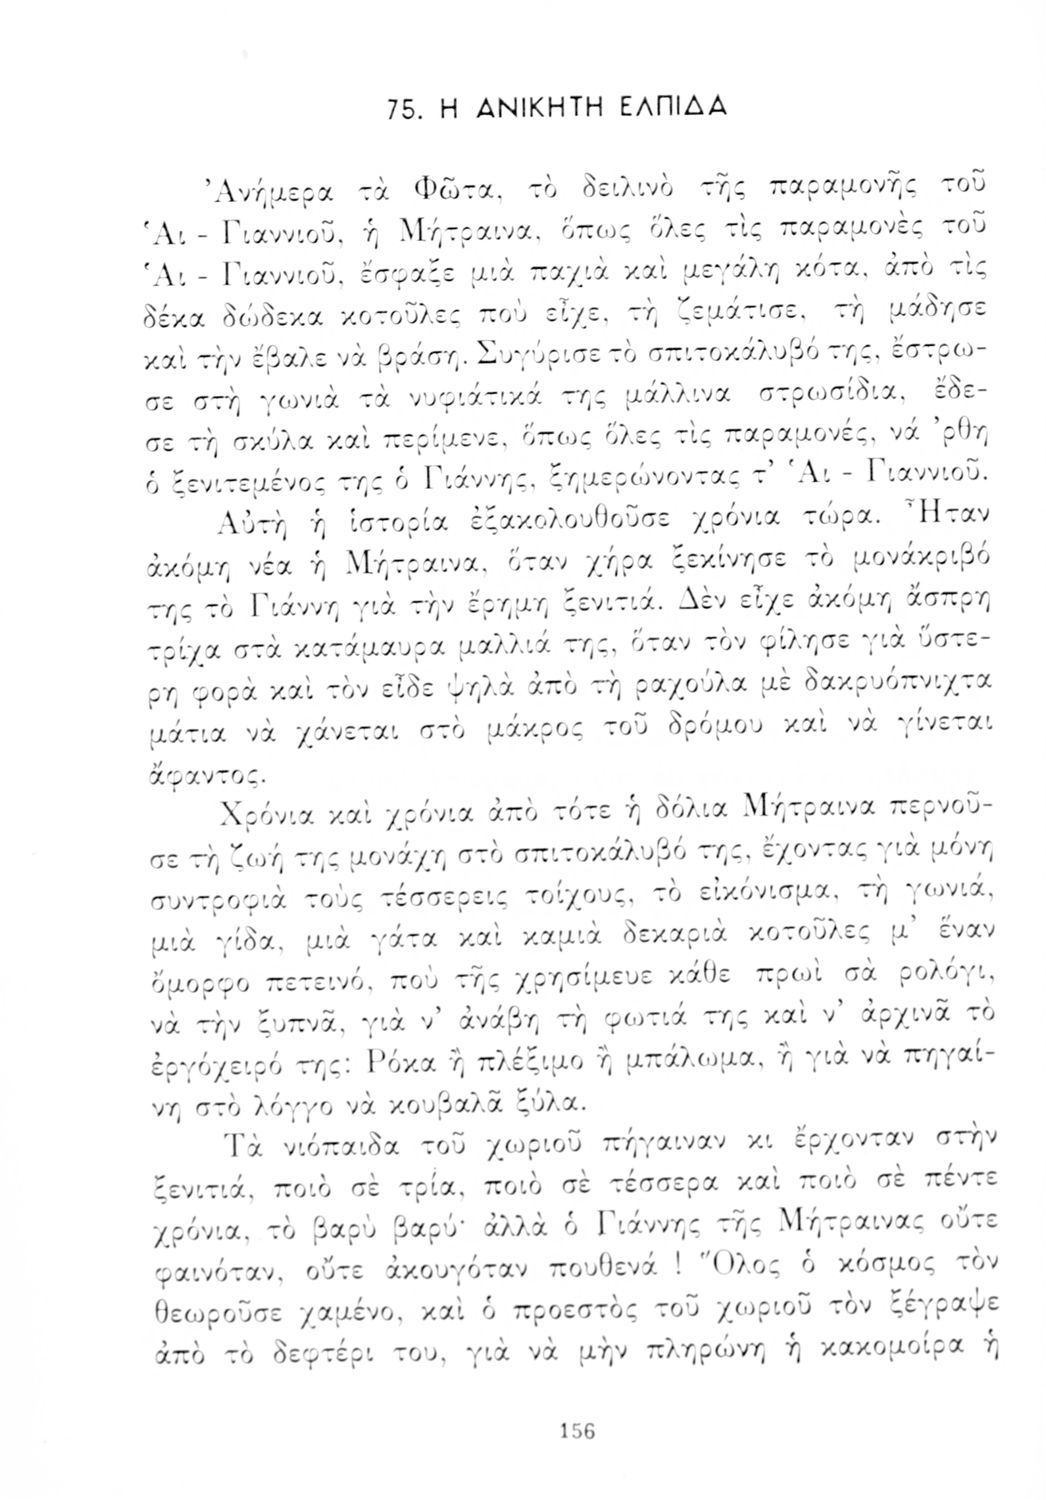 75. Η ΑΝΙΚΗΤΗ ΕΛΠΙΔΑ
Ἀνήμερα τὰ Φῶτα, τὸ δειλινὸ τῆς παραμονῆς τοῦ
Ἁι - Γιαννιοῦ, ἡ Μήτραινα, ὅπως ὅλες τὶς παραμονὲς τοῦ
Ἁι - Γιαννιοῦ, ἔσφαξε μιὰ παχιὰ καὶ μεγάλη κότα, ἀπὸ τὶς
δέκα δώδεκα κοτοῦλες ποὺ εἶχε, τὴ ζεμάτισε, τὴ μάδησε
καὶ τὴν ἔβαλε νὰ βράση. Συγύρισε τὸ σπιτοκάλυβό της, ἔστρω-
σε στὴ γωνιὰ τὰ νυφιάτικά της μάλλινα στρωσίδια, ἔδε-
σε τὴ σκύλα καὶ περίμενε, ὅπως ὅλες τὶς παραμονές, νά ’ρθη
ὁ ξενιτεμένος της ὁ Γιάννης, ξημερώνοντας τ’ Ἁι - Γιαννιοῦ.
Αὐτὴ ἡ ἱστορία ἐξακολουθοῦσε χρόνια τώρα. Ἦταν
ἀκόμη νέα ἡ Μήτραινα, ὅταν χήρα ξεκίνησε τὸ μονάκριβό
της τὸ Γιάννη γιὰ τὴν ἔρημη ξενιτιά. Δὲν εἶχε ἀκόμη ἄσπρη
τρίχα στὰ κατάμαυρα μαλλιά της, ὅταν τὸν φίλησε γιὰ ὕστε-
ρη φορὰ καὶ τὸν εἶδε ψηλὰ ἀπὸ τὴ ραχούλα μὲ δακρυόπνιχτα
μάτια νὰ χάνεται στὸ μάκρος τοῦ δρόμου καὶ νὰ γίνεται
ἄφαντος.
Χρόνια καὶ χρόνια ἀπὸ τότε ἡ δόλια Μήτραινα περνοῦ-
σε τὴ ζωή της μονάχη στὸ σπιτοκάλυβό της, ἔχοντας γιὰ μόνη
συντροφιὰ τοὺς τέσσερεις τοίχους, τὸ εἰκόνισμα, τὴ γωνιά,
μιὰ γίδα, μιὰ γάτα καὶ καμιὰ δεκαριὰ κοτοῦλες μ’ ἕναν
ὄμορφο πετεινό, ποὺ τῆς χρησίμευε κάθε πρωὶ σὰ ρολόγι,
νὰ τὴν ξυπνᾶ, γιὰ ν’ ἀνάβη τὴ φωτιά της καὶ ν’ ἀρχινᾶ τὸ
ἐργόχειρό της: Ρόκα ἢ πλέξιμο ἢ μπάλωμα, ἢ γιὰ νὰ πηγαί-
νη στὸ λόγγο νὰ κουβαλᾶ ξύλα.
Τὰ νιόπαιδα τοῦ χωριοῦ πήγαιναν κι ἔρχονταν στὴν
ξενιτιά, ποιὸ σὲ τρία, ποιὸ σὲ τέσσερα καὶ ποιὸ σὲ πέντε
χρόνια, τὸ βαρὺ βαρύ· ἀλλὰ ὁ Γιάννης τῆς Μήτραινας οὔτε
φαινόταν, οὔτε ἀκουγόταν πουθενά ! Ὅλος ὁ κόσμος τὸν
θεωροῦσε χαμένο, καὶ ὁ προεστὸς τοῦ χωριοῦ τὸν ξέγραψε
ἀπὸ τὸ δεφτέρι του, γιὰ νὰ μὴν πληρώνη ἡ κακομοίρα ἡ
156